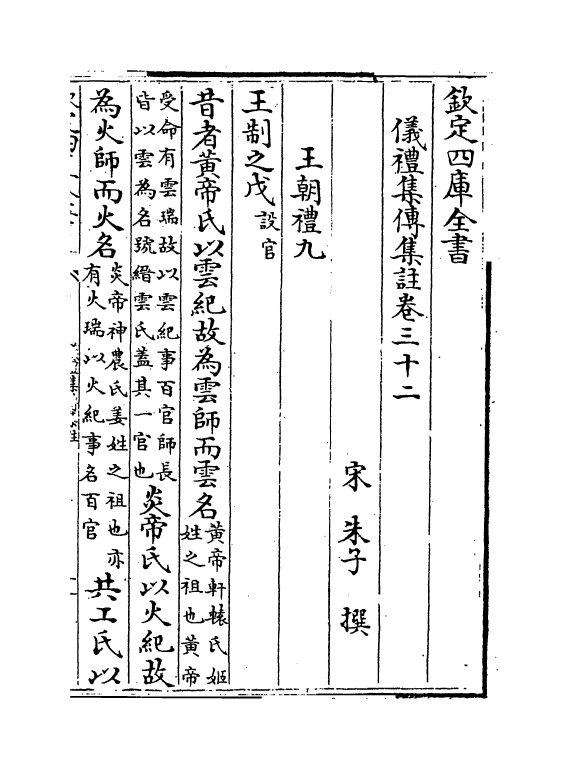 欽定四庫全書
儀禮集傳集註卷三十二
宋　朱子　撰
王朝禮九
王制之戊設官
昔者黃帝氏以雲紀故為雲師而雲名黃帝軒轅氏姬姓之祖也黃帝
受命有雲瑞故以雲紀事百官師長皆以雲為名號縉雲氏蓋其一官也炎帝氏以火紀故
為火師而火名炎帝神農氏姜姓之祖也亦有火瑞以火紀事名百官共工氏以